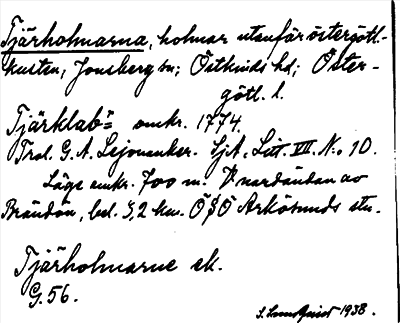 Tjärholmarna, holmar utanför östergötl.-
kusten, Jonsberg sn; Östkinds hd; Öster-
götl. l.
Tjärklab= omkr. 1774.
Trol. G. A. Lejonanker. SjA. Litt. VII. No 10.
Läge omkr. 700 m. V nordändan av
Brändön, bel. 3,2 km. ÖSÖ Arkösunds stn.
Tjärholmarne ek.
G. 56.
S. Lundquist 1938.